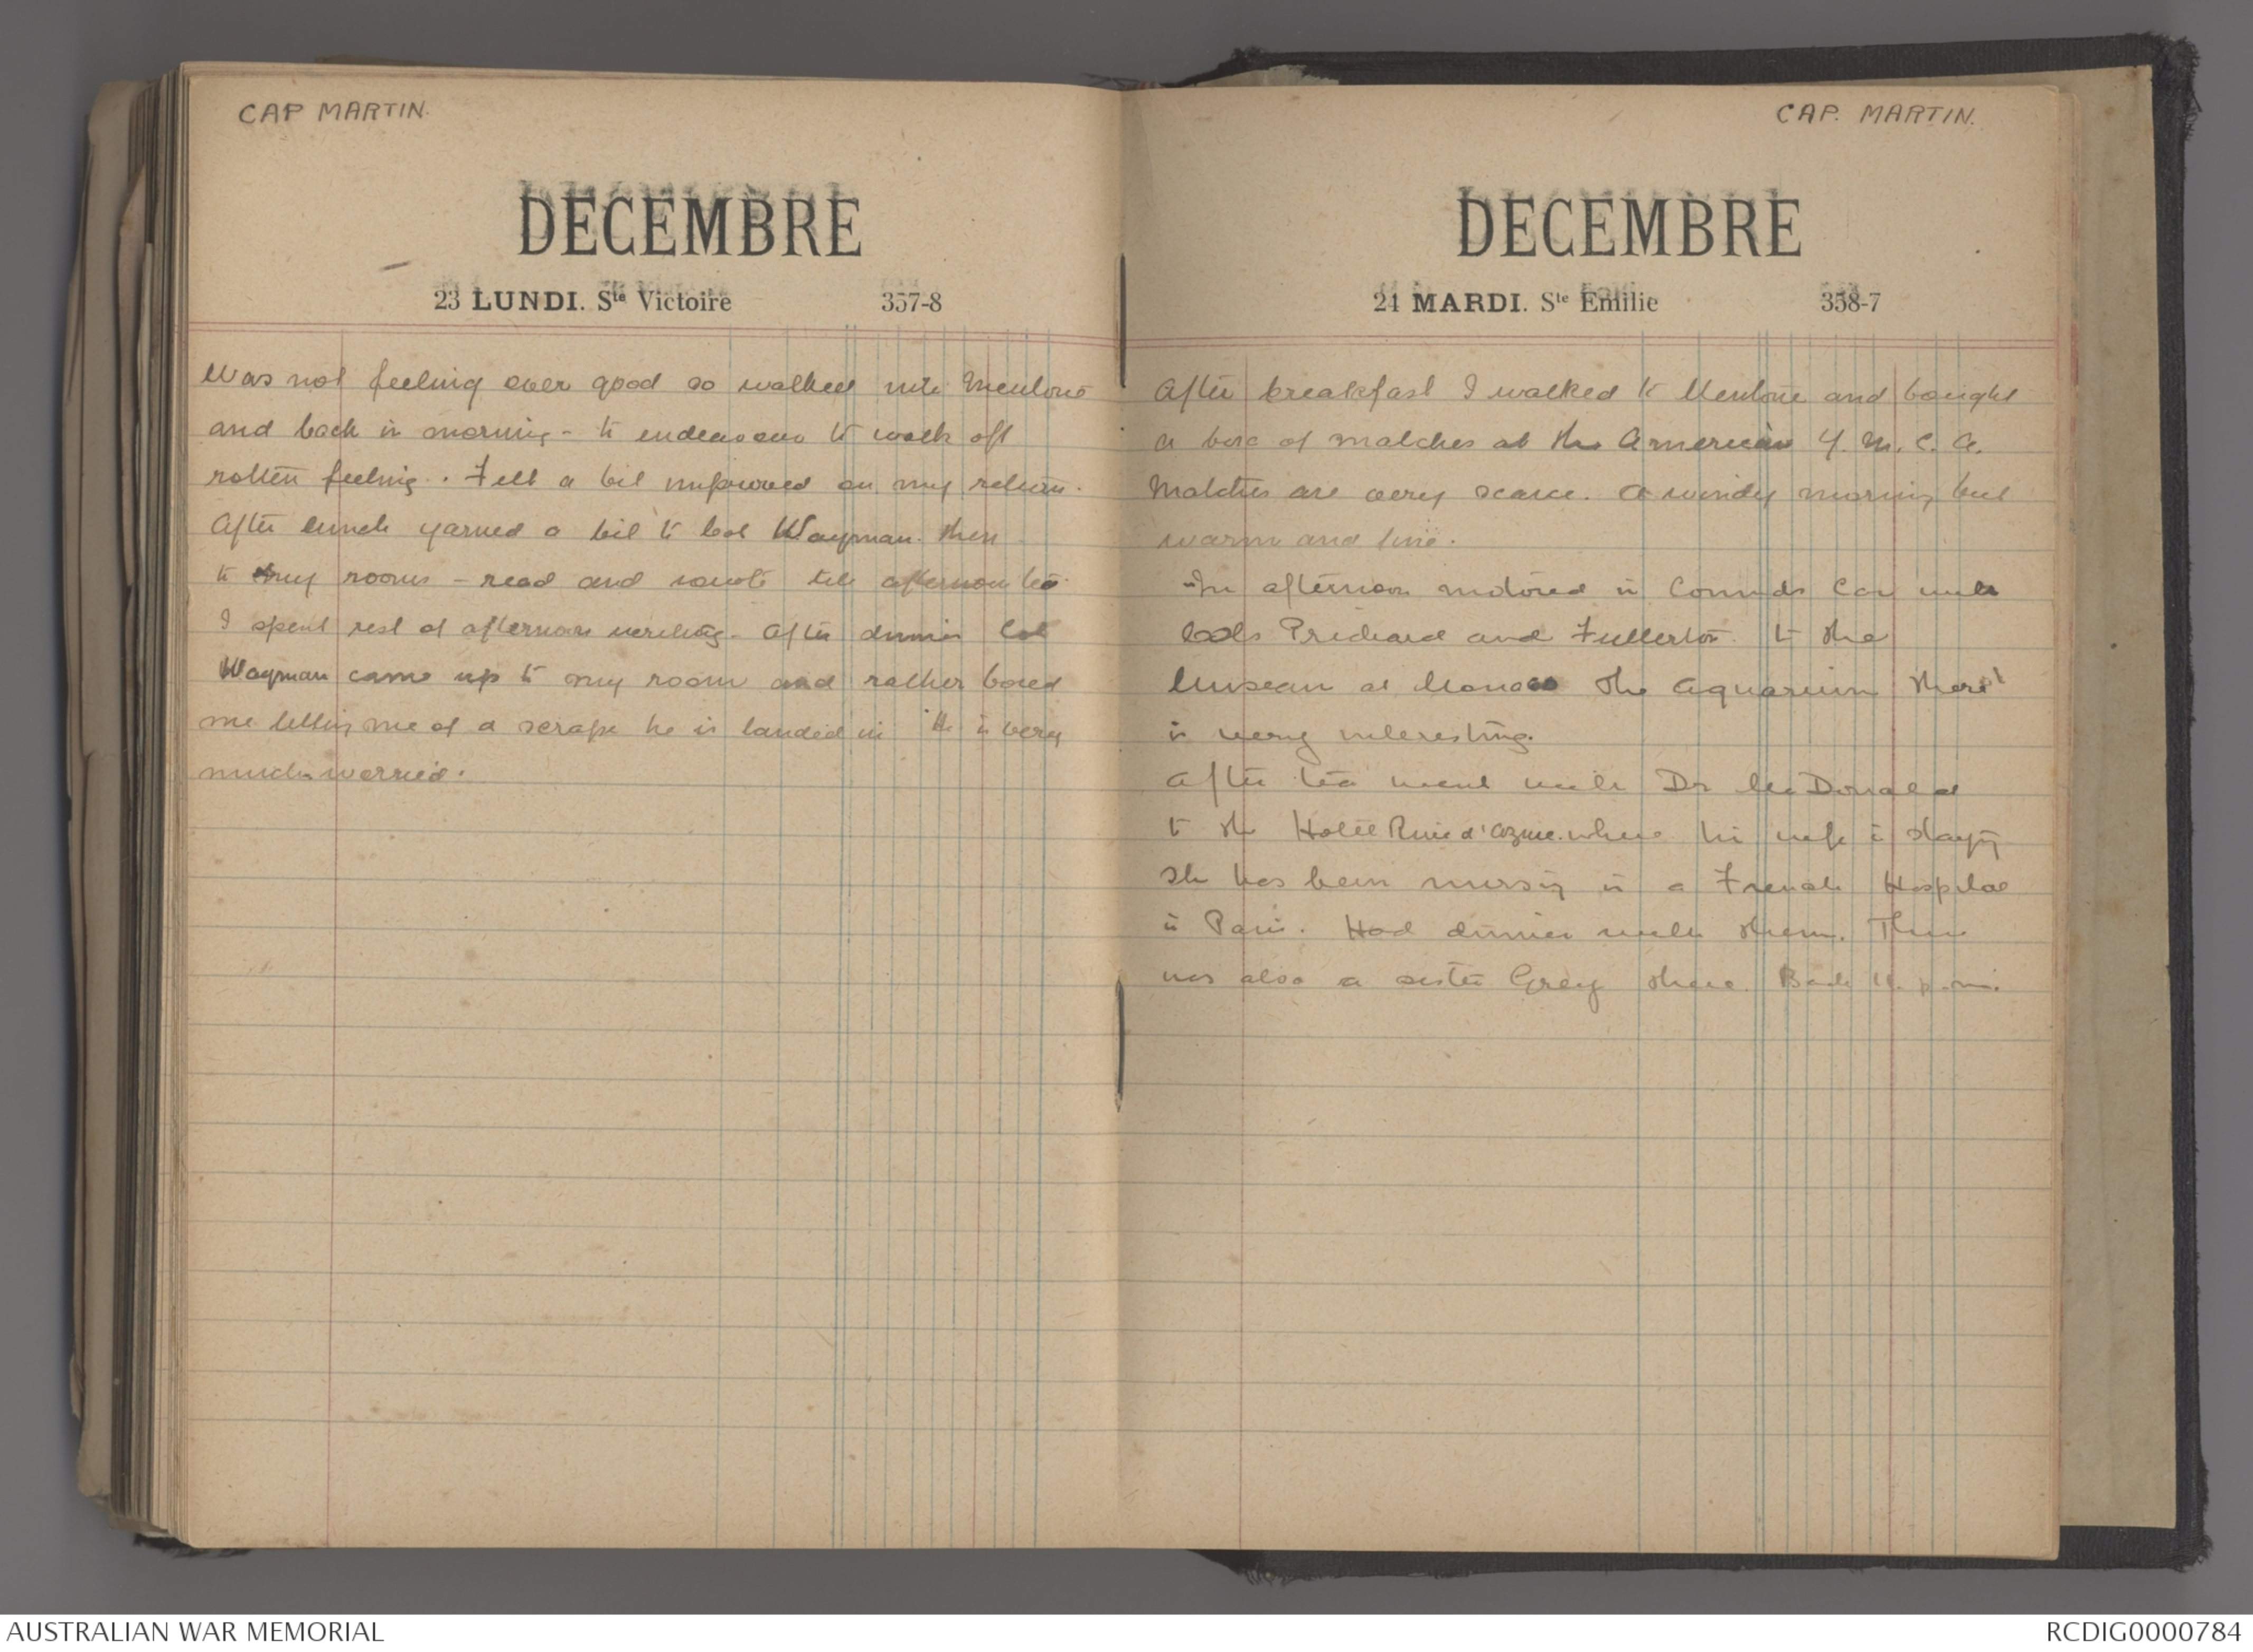 CAP MARTIN.
DECEMBRE
23 LUNDI. Ste Victoire 357-8
Was not feeling over good so walked into Mentone
and back in morning - to endeavour to walk off
rotten feeling. Felt a bit improved on my return.
After lunch yarned a bit to Col Wayman. then
to my room - read and wrote till afternoon tea.
I spent rest of afternoon writing. After dinner Col
Wayman came up to my room and rather bored
me telling me of a scrape he is landed in He is very
much worried.
CAP. MARTIN.
DECEMBRE
24 MARDI. Ste Emilie 358-7
After breakfast I walked to Mentone and bought
a box of matches at the American Y.M.C.A.
Matches are very scarce. A windy morning but
warm and fine.
In afternoon motored in Car with
Cols Prichard and Fullerton to the
Museum at Monaco The aquarium there
is very interesting.
After tea went with Dr McDonald
to the Hotel d'Azure where his wife is staying
She has been nursing in a French Hospital
in Paris. Had dinner with them. There
was also a sister Grey there. Back p.m.
AUSTRALIAN WAR MEMORIAL
RCDIG0000784